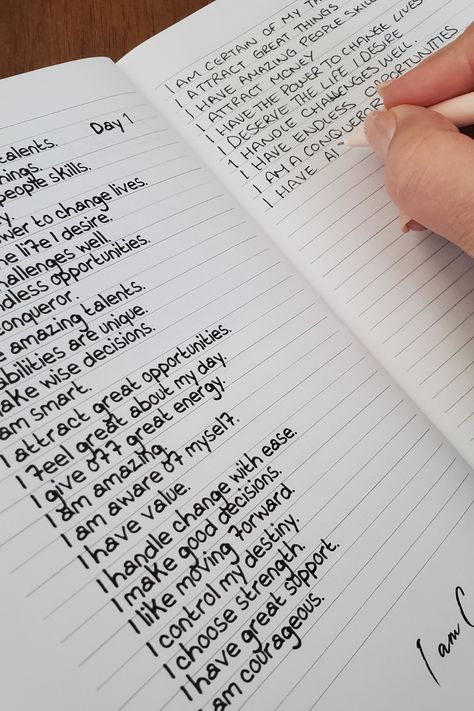 Day 1
talents.
people skills.
to change lives.
life I desire.
challenges well.
endless opportunities.
conqueror.
amazing talents.
abilities are unique.
make wise decisions.
am smart.
I attract great opportunities.
I feel great about my day.
I give off great energy.
I am amazing.
I am aware of myself.
I have value.
I handle change with ease.
I make good decisions.
I like moving forward.
I control my destiny.
I choose strength.
I have great support.
I am courageous.
I AM CERTAIN OF MY
I ATTRACT GREAT THINGS
I HAVE AMAZING PEOPLE SKILLS
I ATTRACT MONEY
I HAVE THE POWER TO CHANGE LIVES
I DESERVE THE LIFE I DESIRE
I HANDLE CHALLENGES WELL.
I HAVE ENDLESS OPPORTUNITIES
I AM A CONQUEROR
I HAVE
I am